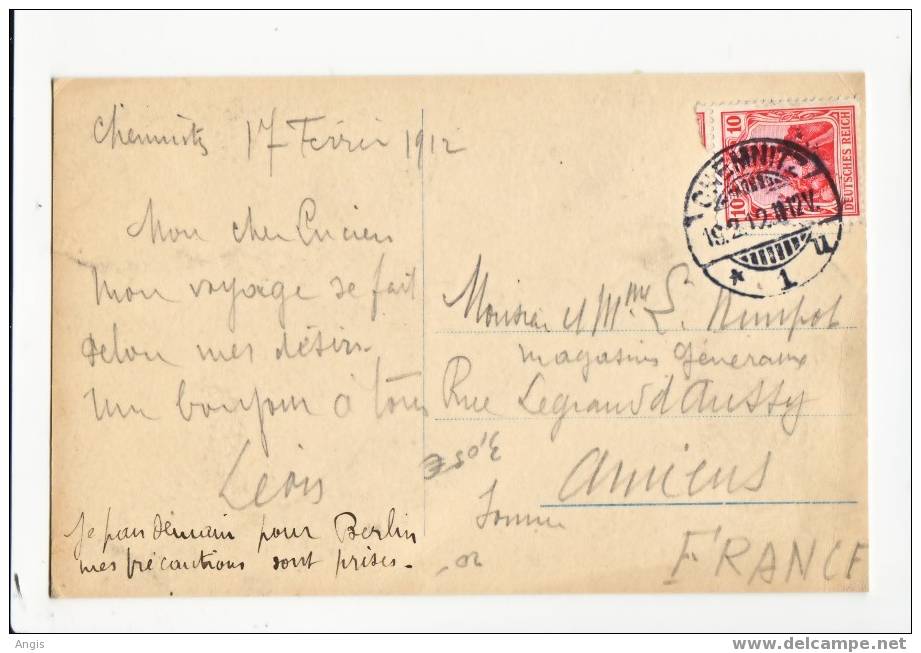 Chemnitz 17 Février 1912
Mon cher Lucien
mon voyage se fait
selon mes désirs.
un bonjour à tous
Léon
Je pars demain pour Berlin
mes précautions sont prises.
10
10
DEUTSCHES REICH
CHEMNITZ
19.2.12.11-12V.
* 1 u
Monsieur et Mme L.
Magasins Généraux
Rue Legrand d'Aussy
Amiens
Somme
FRANCE
3,05€
Angis
www.delcampe.net